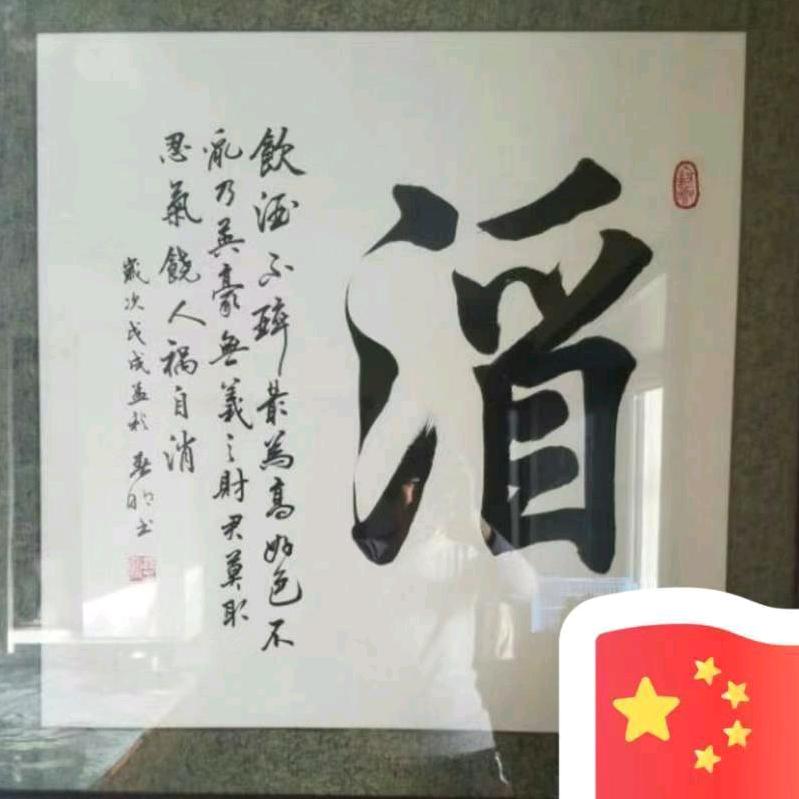 飲酒不醉最為高好色不
亂乃英豪無義之財君莫取
忍氣饒人禍自消
歲次戊戌孟秋書